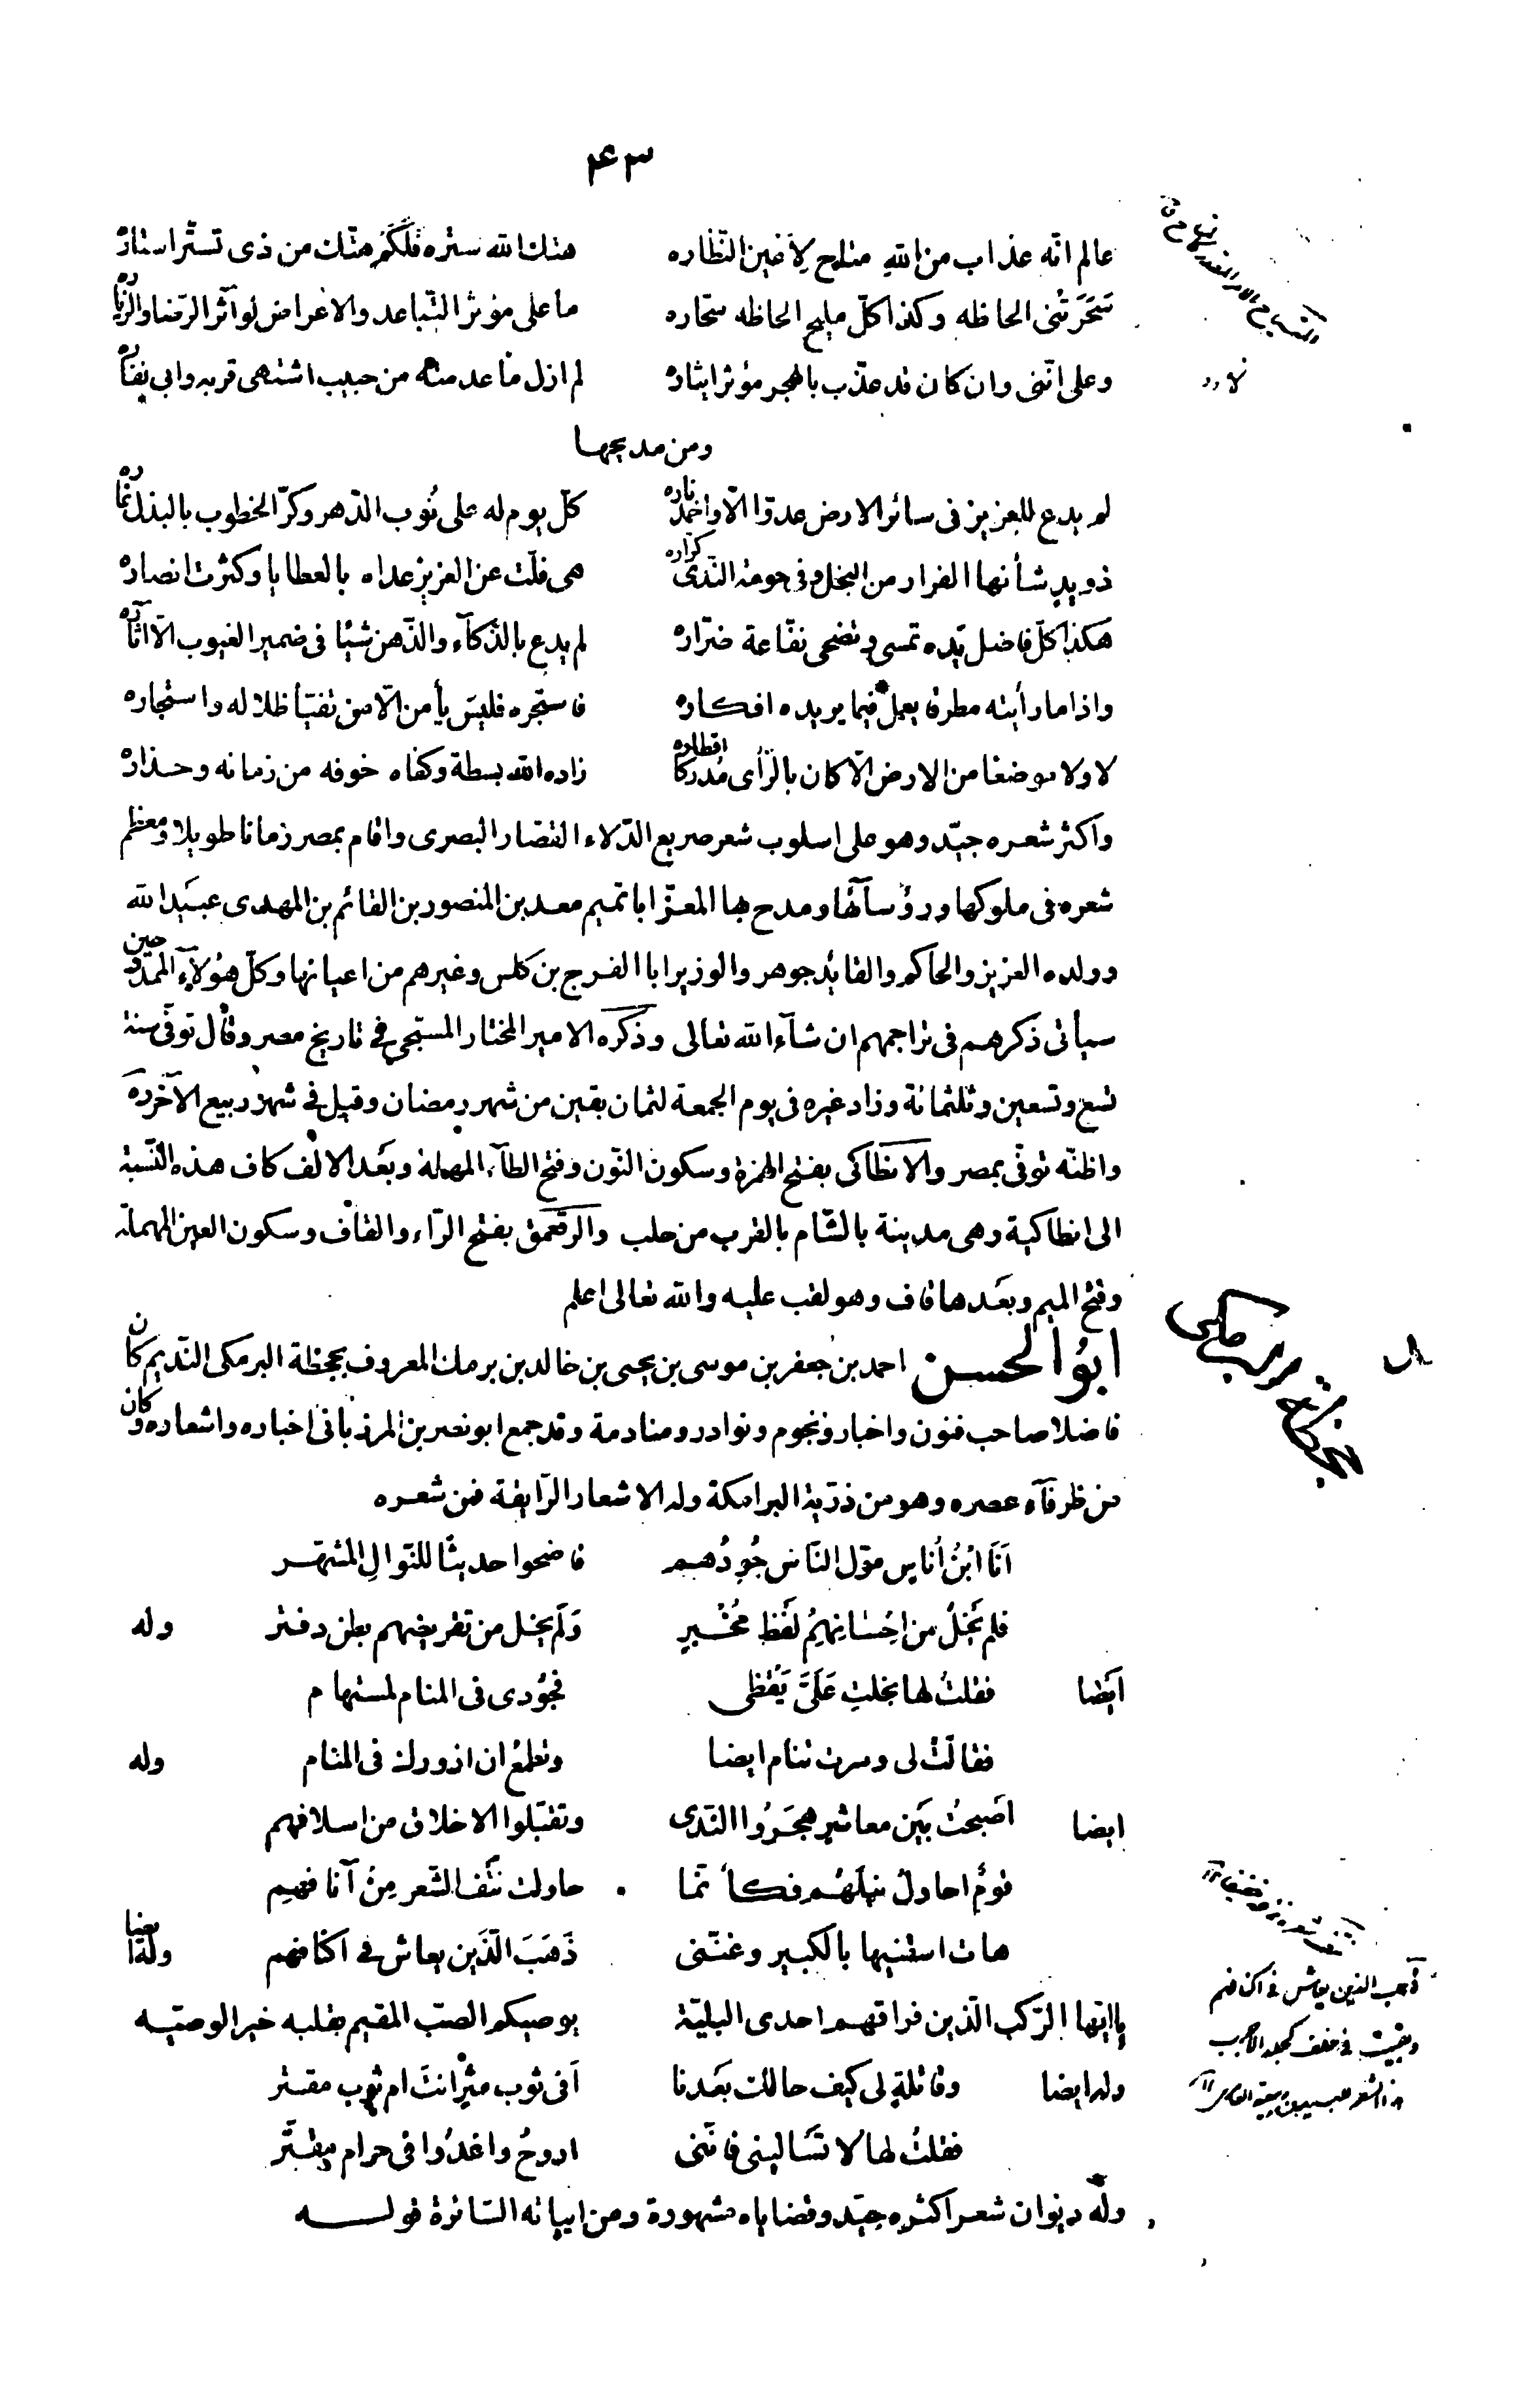 ۴۳
عالم انّه عذاب من اللهِ متاح لِأعين النّظاره هتك الله ستره فلكم هتّك من ذى تستّر استاره
سَحَرَتْنى الحاظه وكذا كلّ مليح الحاظه سحّاره ما على مؤثر التّباعد والاعراض لو آثر الرّضا والزّياره
وعلى انّنى وان كان قد عذّب بالهجر مؤثر ايثاره لم ازل ما عدمته من حبيب اشتهى قربه وابى نفاره
ومن مديحها
لم يدع للعزيز فى سائر الارض عدوّا الّا واخمد ناره كلّ يوم له على نُوَب الدّهر وكرّ الخطوب بالبذل غاره
ذو يدٍ شأنها الفرار من البخل وفى حومة النّدى كرّاره هى فلّت عن العزيز عداه بالعطايا وكثرت انصاره
هكذا كلّ فاضل يّده تمسى وتضحى نفّاعة ضرّاره لم يدع بالذّكآء والذّهن شيئا فى ضمير الغيوب الّا اثاره
واذا ما رأيته مطرقا يعمل فيما يريده افكاره فاستجره فليس يأمن الّا من تفيّأ ظلاله واستجاره
لا ولا موضعا من الارض الّا كان بالرّأى مُدركا اقطاره زاده الله بسطة وكفاه خوفه من زمانه وحذاره
واكثر شعره جيّد وهو على اسلوب شعر صريع الدّلاء القصّار البصرى واقام بمصر زمانا طويلا ومعظم
شعره فى ملوكها ورؤسآئها ومدح بها المعزّ ابا تميم معد بن المنصور بن القائم بن المهدى عبيد الله
وولده العزيز والحاكم والقائد جوهر والوزير ابا الفرج بن كلس وغيرهم من اعيانها وكلّ هؤلآء الممدوحين
سيأتى ذكرهم فى تراجمهم ان شآء الله تعالى وذكره الامير المختار المسبّحى فى تاريخ مصر وقال توفّى سنة
تسع وتسعين وثلثمائة وزاد غيره فى يوم الجمعة لثمان بقين من شهر رمضان وقيل فى شهر ربيع الآخر ره
واظنّه توفّى بمصر والانطاكى بفتح الهمزة وسكون النّون وفتح الطآء المهملة وبعد الالف كاف هذه النّسبة
الى انطاكية وهى مدينة بالشّام بالقرب من حلب والرّقعمق بفتح الرّاء والقاف وسكون العين المهملة
وفتح الميم وبعدها قاف وهو لقب عليه والله تعالى اعلم
ابو الحسن احمد بن جعفر بن موسى بن يحيى بن خالد بن برمك المعروف بجحظة البرمكى النّديم كان
فاضلا صاحب فنون واخبار ونجوم ونوادر ومنادمة وقد جمع ابو نصر بن المرزبانى اخباره واشعاره وكان
من ظرفآء عصره وهو من ذرّية البرامكة وله الاشعار الرّايقة فمن شعره
اَنَا ابْنُ اُناسٍ موّل النّاس جُودُهم فاضحوا حديثًا للنّوالِ المشتهر
فلم يَخلُ من اِحْسانِهِمْ لَفْظ مُخْبرٍ وَلَم يخل من تقريضهم بطن دفتر وله
ايضا فقلتُ لها بخلتِ عَلَىَّ يَقْظى فجُودى فى المنام لمستهام
فقالَتْ لى وصرت تنام ايضا وتطمعُ ان ازورك فى المنام وله
ايضا اَصبحتُ بَين معاشرٍ هجَرُوا النّدى وتقبّلوا الاخلاق من اسلافهم
قومٌ احاولُ نيلَهُم فكأنّما حاولت نَتْفَ الشّعر مِنْ آنافهِم
هات اسقنيها بالكبير وغنّنى ذَهَبَ الَّذَين يعاش فى اكنافهم وله ايضا
يا ايّها الرّكب الّذين فراقهم احدى البليّة يوصيكم الصبّ المقيم بقلبه خير الوصيّه
وله ايضا وقائلةٍ لى كيف حالك بَعدنا اَفى ثوب مثْرٍ انتَ ام ثوب مقتر
فقلتُ لها لا تَسْألينى فانّنى اروحُ واغدُوا فى حرام مقتّر
وله ديوان شعر اكثره جيّد وقضاياه مشهورة ومن ابياته السّائرة قوله
ذهب الذين يعاش فى اكنافهم
وبقيت فى خلف كجلد الاجرب